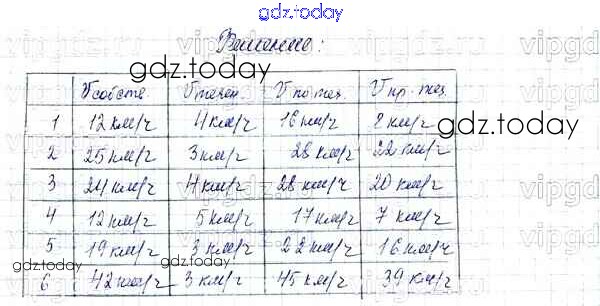 gdz.today
Решение:
gdz.today
Vсобств. Vтечен. Vпо теч. Vпр. теч.
1 12 км/ч 4 км/ч 16 км/ч 8 км/ч
gdz.today
2 25 км/ч 3 км/ч 28 км/ч 22 км/ч
3 24 км/ч 4 км/ч 28 км/ч 20 км/ч
4 12 км/ч 5 км/ч 17 км/ч 7 км/ч
5 19 км/ч 3 км/ч 22 км/ч 16 км/ч
gdz.today
6 42 км/ч 3 км/ч 45 км/ч 39 км/ч
gdz.today